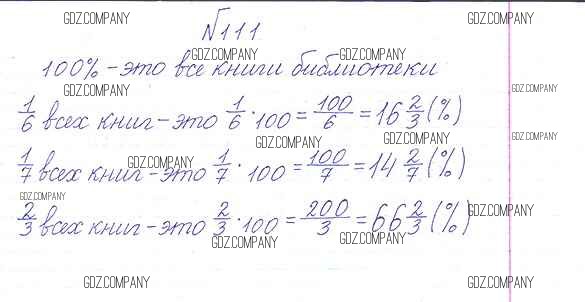 GDZ.COMPANY GDZ.COMPANY
№111
GDZ.COMPANY GDZ.COMPANY
100% - это все книги библиотеки
GDZ.COMPANY GDZ.COMPANY
1/6 всех книг - это 1/6 · 100 = 100/6 = 16 2/3 (%)
GDZ.COMPANY GDZ.COMPANY
1/7 всех книг - это 1/7 · 100 = 100/7 = 14 2/7 (%)
GDZ.COMPANY
GDZ.COMPANY GDZ.COMPANY
2/3 всех книг - это 2/3 · 100 = 200/3 = 66 2/3 (%)
GDZ.COMPANY GDZ.COMPANY
GDZ.COMPANY GDZ.COMPANY